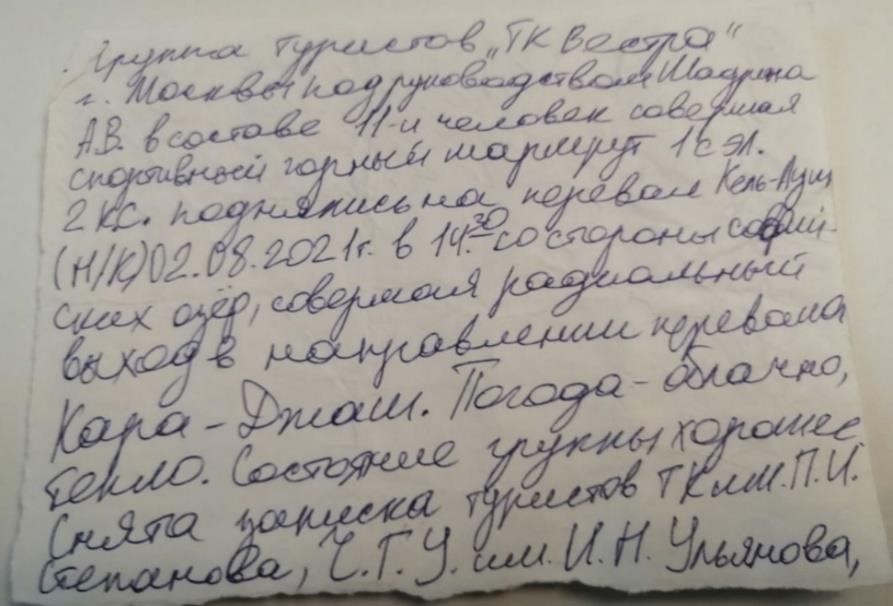 Группа туристов „ТК Вестра"
г. Москвы под руководством Шадрина
А.В. в составе 11-и человек совершая
спортивный горный маршрут 1 с эл.
2 к.с. поднялись на перевал Кель-Ауш
(Н/К) 02.08.2021г. в 14.30 со стороны софий-
ских озёр, совершая радиальный
выход в направлении перевала
Кара-Джаш. Погода-облачно,
тепло. Состояние группы хорошее.
Снята записка туристов ТК им. П.И.
Степанова, Ч.Г.У. им. И.Н. Ульянова,